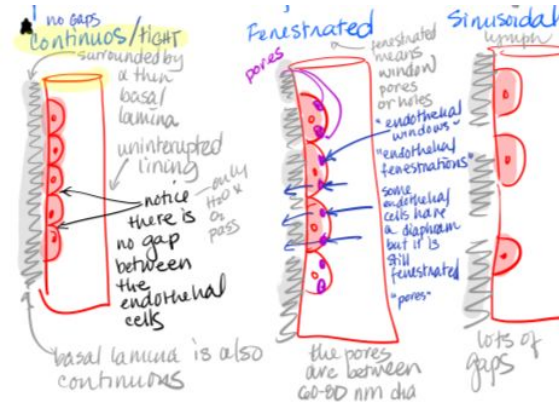 no gaps
continuos/TIGHT
surrounded by
a thin
basal
lamina
uninterupted
lining
notice
there is
no gap
between
the
endothelial
cells
only
H2O &
O2
pass
basal lamina is also
continuous
Fenestrated
pores
fenestrated
means
window
pores
or holes
"endothelial
windows"
"endothelial
fenestrations"
some
endothelial
cells have
a diaphram
but it is
still
fenestrated
"pores"
the pores
are between
60-80 nm dia
Sinusoidal
lymph
lots of
gaps